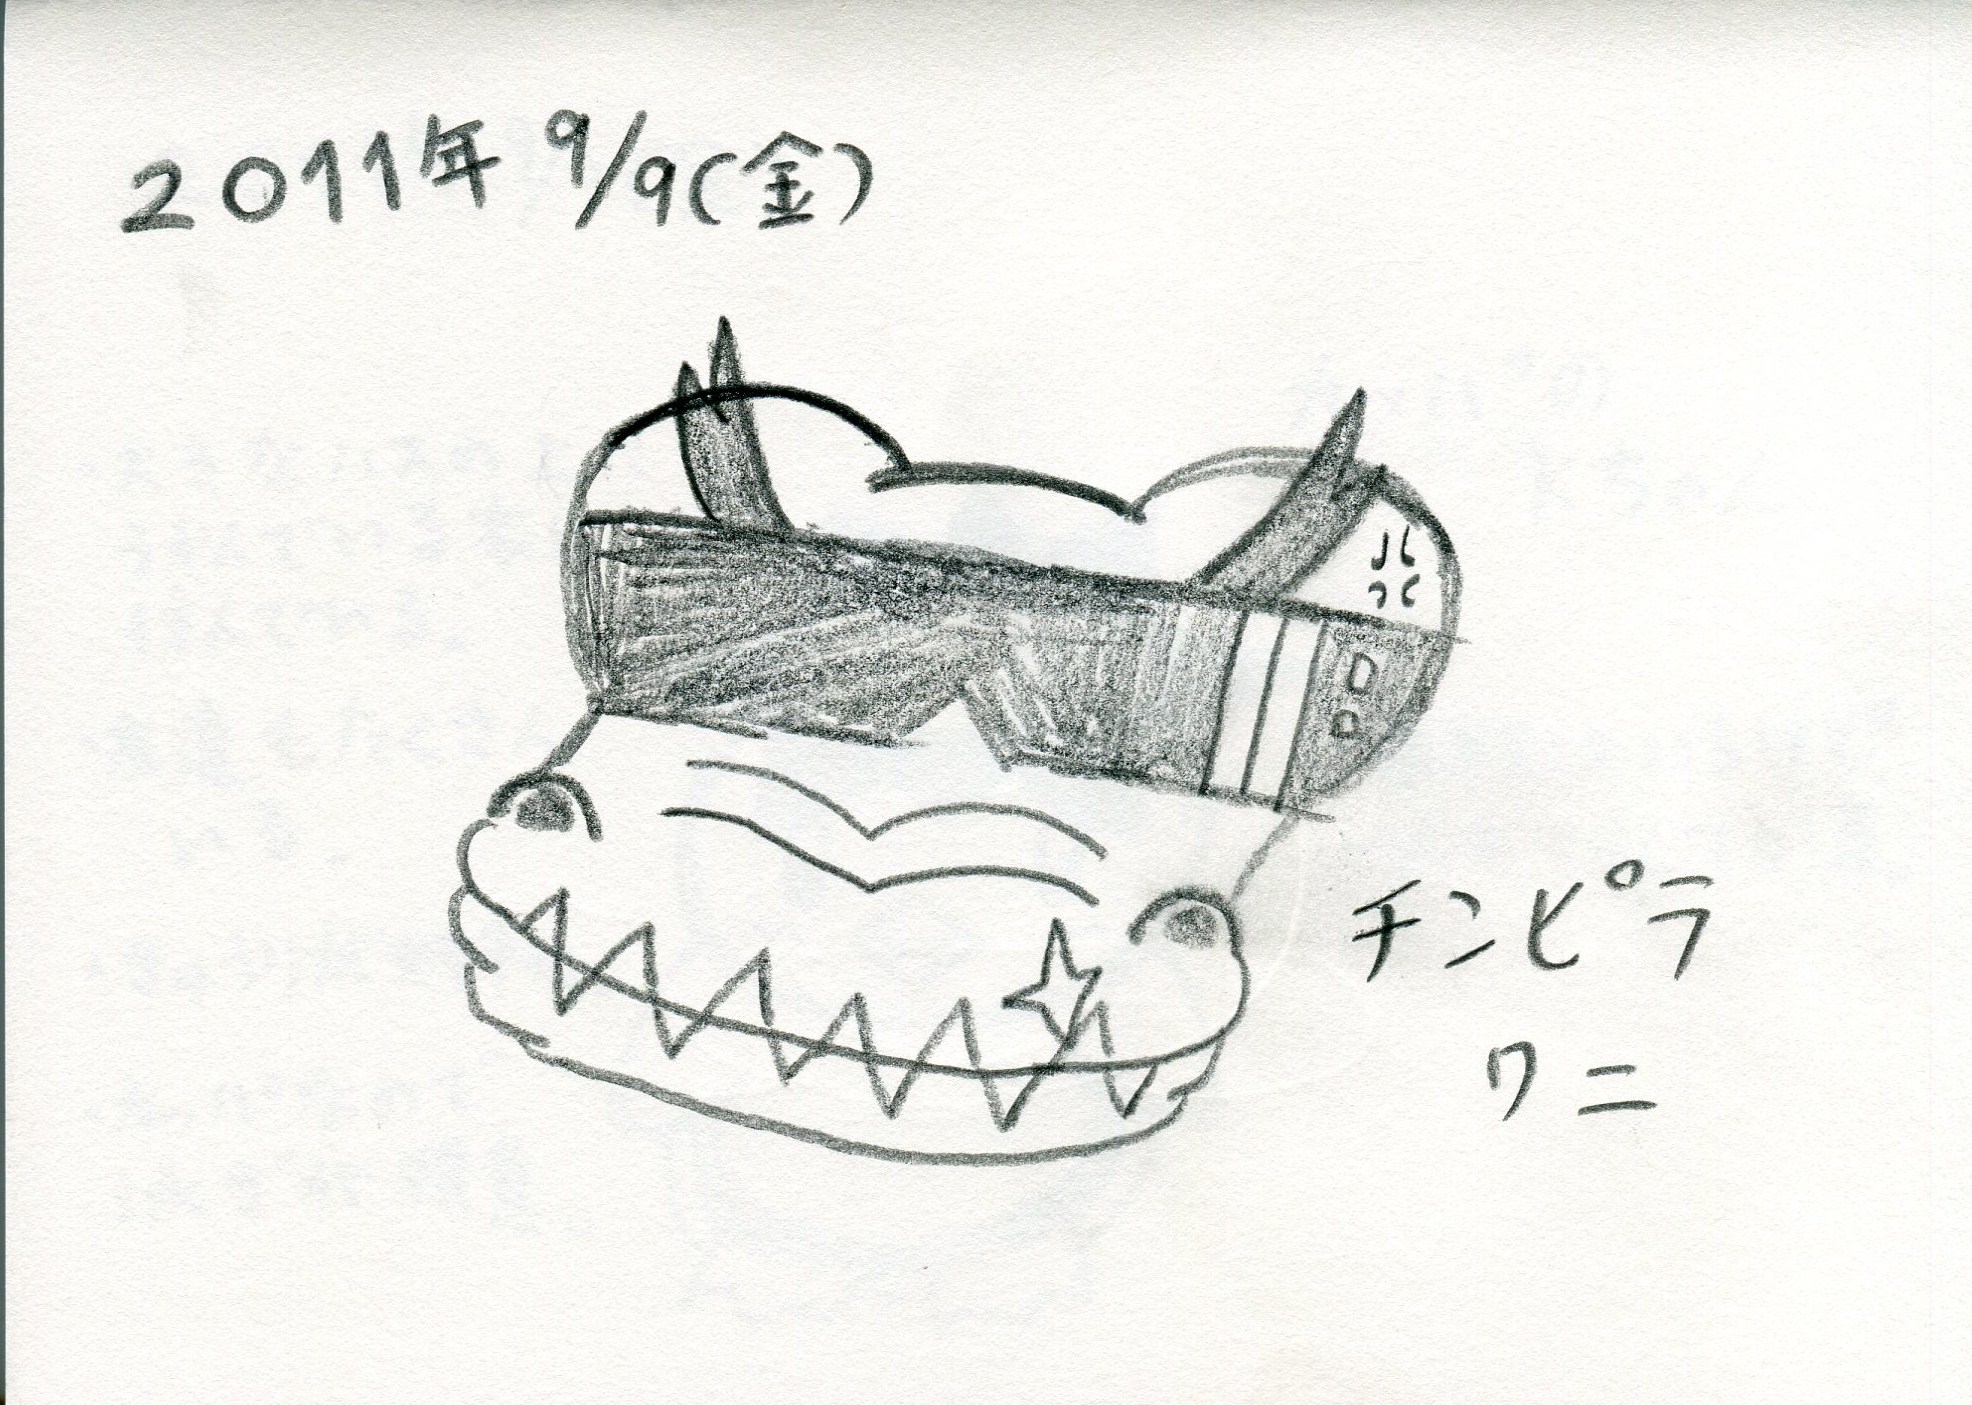 2011年 9/9(金)
チンピラ
ワニ